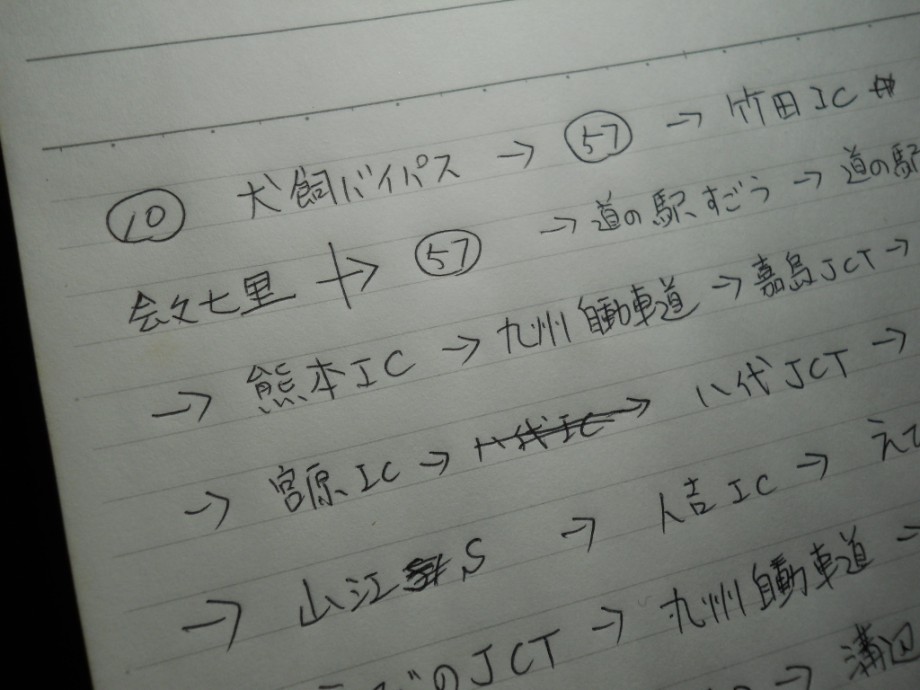 ⑩ 犬飼バイパス → 57 → 竹田IC
会々七里 → 57 → 道の駅すごう → 道の駅
→ 熊本IC → 九州自動車道 → 嘉島JCT →
→ 宮原IC → 八代IC → 八代JCT →
→ 山江S → 人吉IC → えび
びのJCT → 九州自動車道 →
→ 溝辺